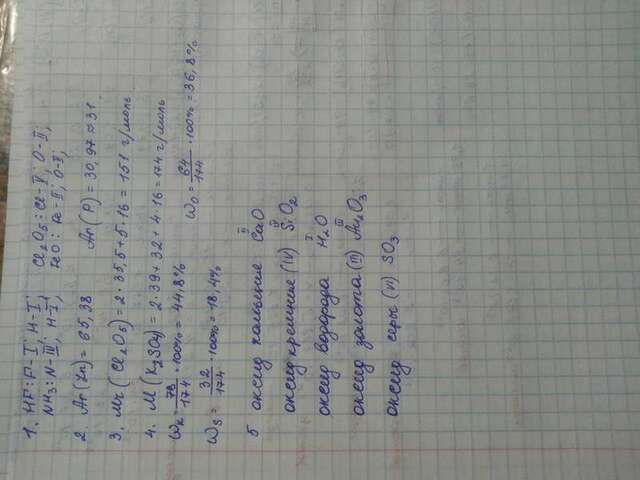 1. HF: F-I; H-I; Cl₂O₅: Cl-V; O-II;
NH₃: N-III; H-I; FeO: Fe-II; O-II;
2. Ar(Zn) = 65,38 Ar(P) = 30,97 ≈ 31
3. Mr(Cl₂O₅) = 2·35,5 + 5·16 = 151 г/моль
4. M(K₂SO₄) = 2·39 + 32 + 4·16 = 174 г/моль
Wк = 78/174 ·100% = 44,8%
Ws = 32/174 ·100% = 18,4% Wo = 64/174 ·100% = 36,8%
5 оксид кальция II CaO
оксид кремния (IV) IV SiO₂
оксид водорода I H₂O
оксид золота (III) III Au₂O₃
оксид серы (VI) SO₃